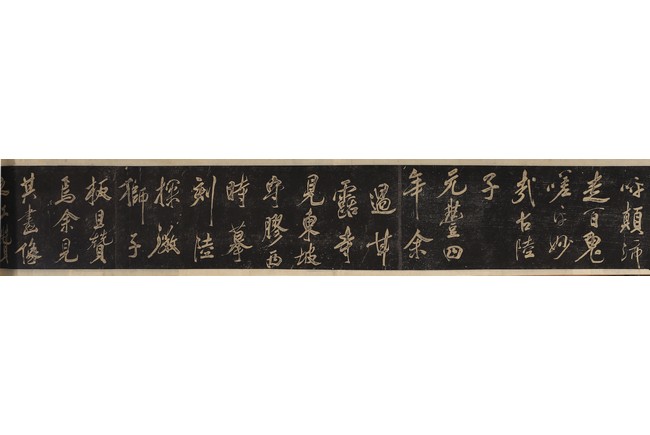 呼顛沛
走百鬼
嗟乎妙
哉古陸
子
元豐四
年余
過甘
露寺
見東坡
守膠西
時摹
刻陸
探微
獅子
板且贊
焉余見
其畫像